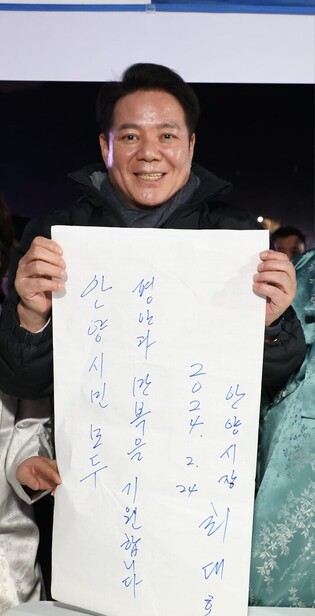 안양시민 모두
평안과 만복을 기원합니다
2024. 2. 24
안양시장 최대호